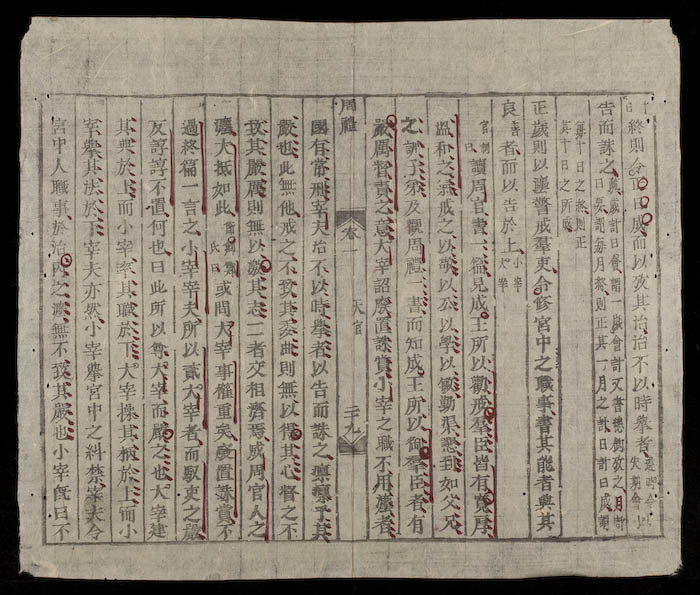 終則令正日成而以攷其治治不以時舉者
告而誅之歲計曰會謂一歲會計文書總數攷之月計
曰要謂每月終則正其一月之計日計曰成謂
每十日之終則正
其十日之所成
正歲則以灋警戒羣吏令修宮中之職事書其能者與其
良善者而以告於上小宰大宰
讀周官書一篇見成王所以勸戒羣臣皆有寬厚
溫和之氣戒之以敬以公以學以敏勤懇懇到如父兄
之訓子弟及觀周禮一書而知成王所以御羣臣者有
嚴厲督責之意大宰詔廢置誅賞小宰之職不用灋者
周禮 卷一 天官 三九
國有常刑宰夫治不以時舉者以告而誅之凜凜乎其
嚴也此無他戒之不致其委曲則無以得其心督之不
致其嚴厲則無以激其志二者交相濟焉成周官人之
灋大抵如此氏曰或問大宰事權重矣廢置誅賞不
過終篇一言之小宰宰夫所以貳大宰者而馭吏之嚴
反諄諄不置何也曰此所以尊大宰而嚴之也大宰建
其典於上而小宰率其職於下大宰操其柄於上而小
宰舉其法於下宰夫亦然小宰舉宮中之糾禁宰夫令
宮中人職事於治內之灋無不致其嚴也小宰旣曰不